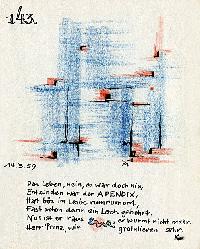 143.
14.3.59
Das Leben, nein, es war doch nix,
Entzunden war der APENDIX,
Hat bös im Leibe rumrumort,
Fast schon dann ein Loch gebohrt.
Nus ist er raus er wurmt nicht mehr.
Herr Prinz, wir gratulieren sehr.